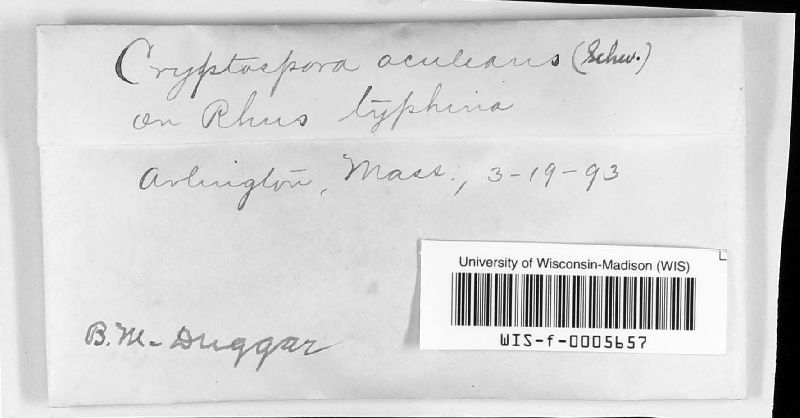 Cryptospora aculeans (Schw.)
on Rhus typhina
Arlington, Mass., 3-19-93
University of Wisconsin-Madison (WIS)
WIS-f-0005657
B.M. Duggar